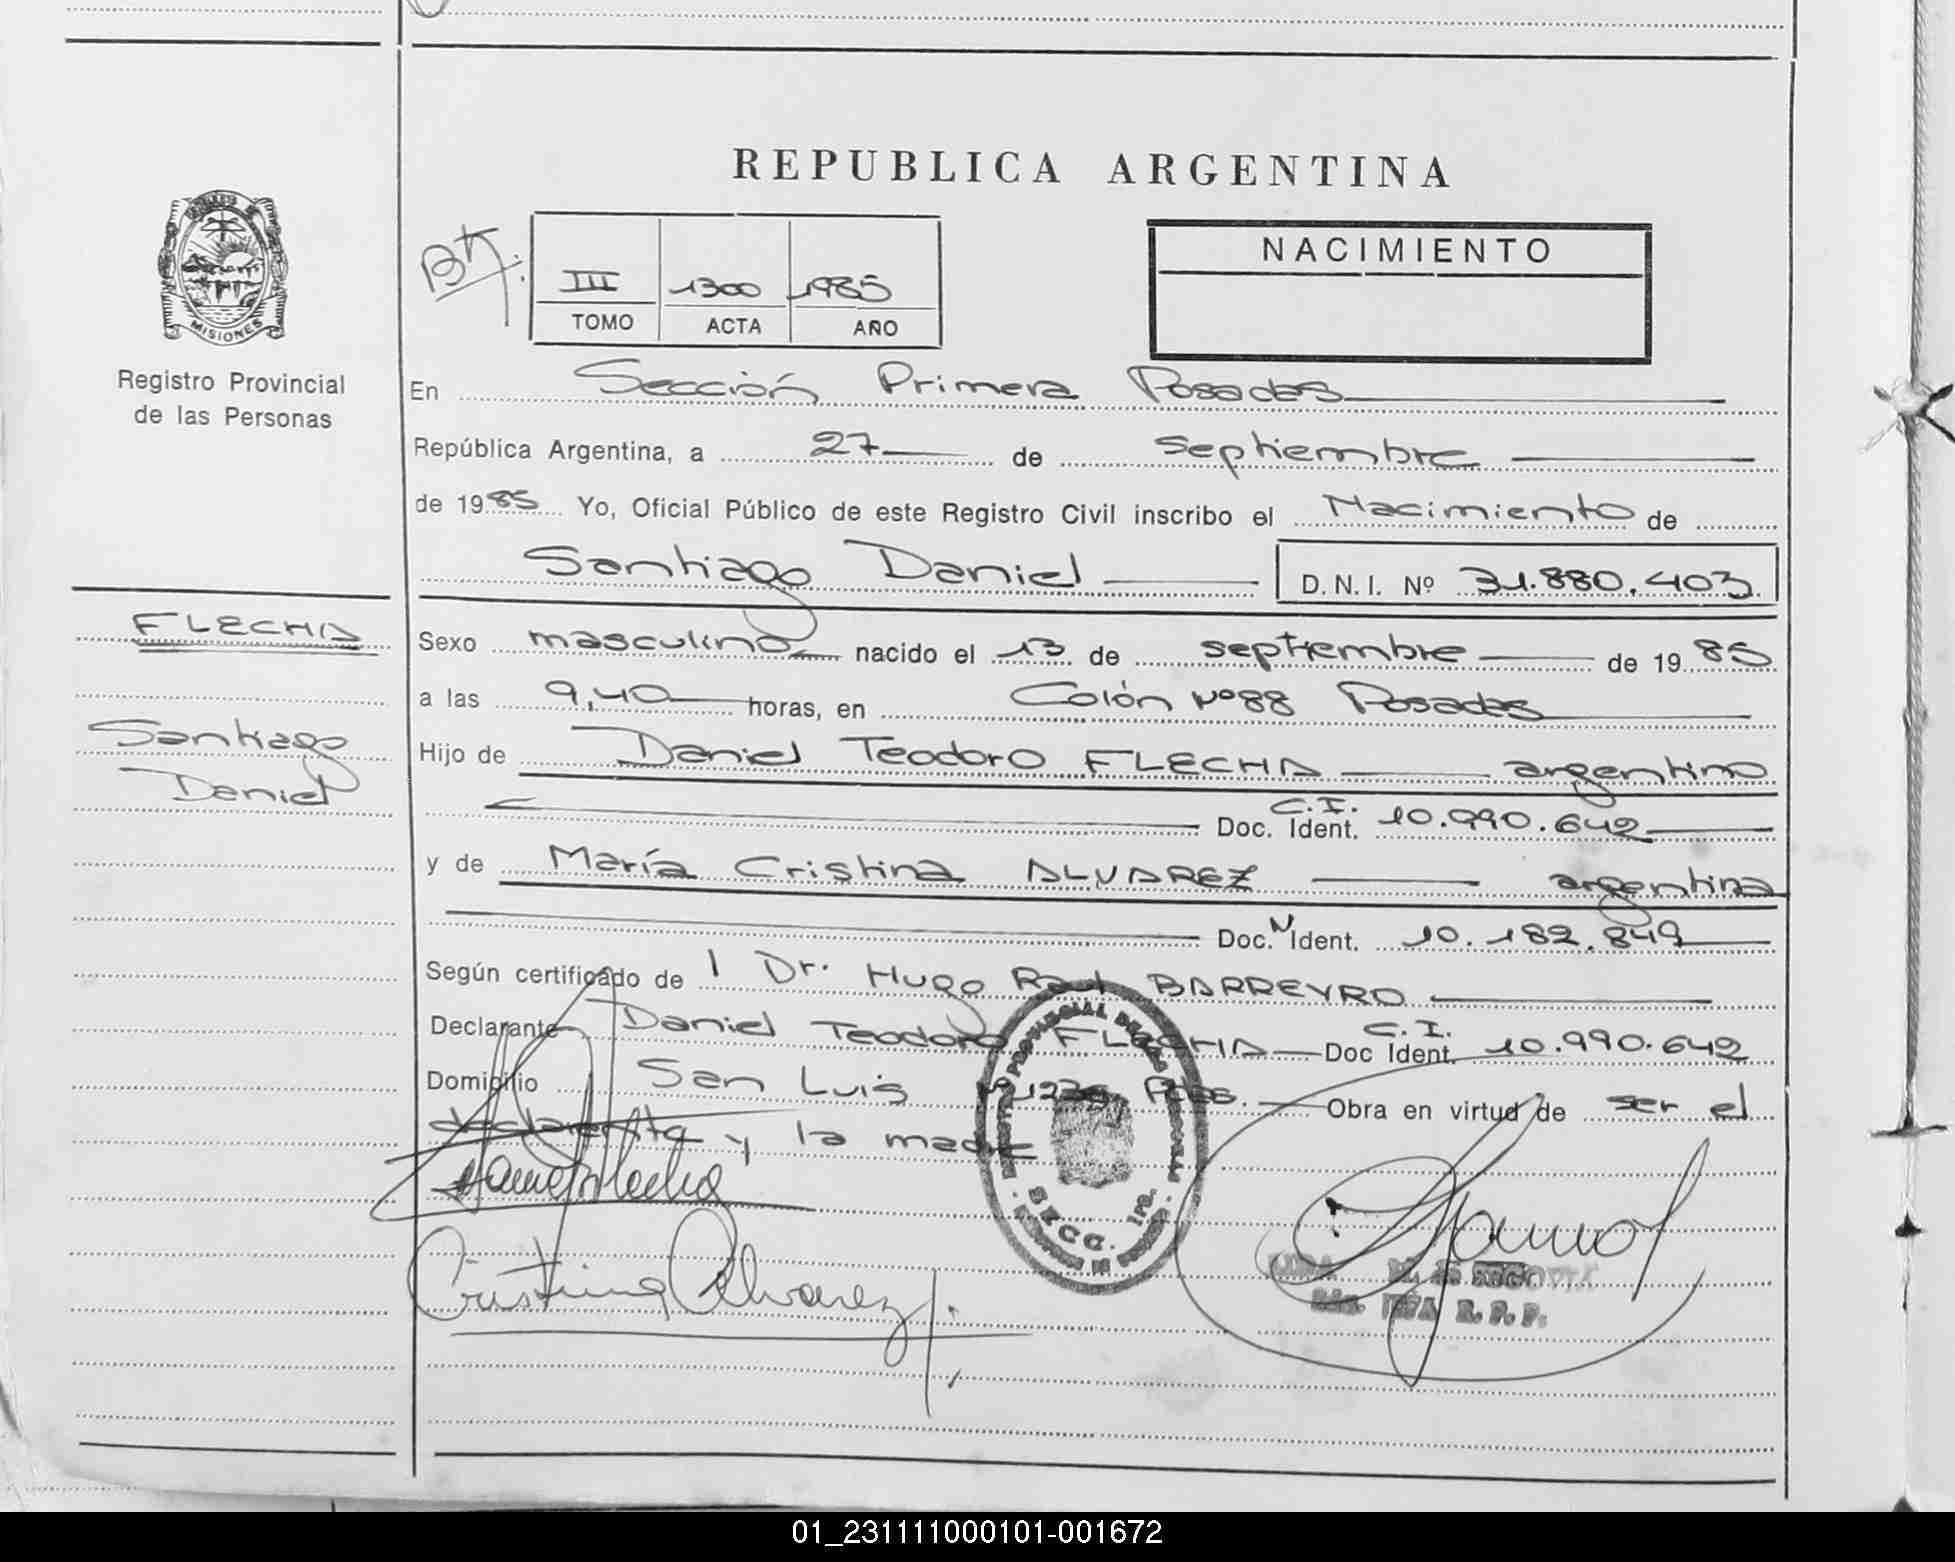 REPUBLICA ARGENTINA
III 1300 1985
TOMO ACTA AÑO
NACIMIENTO
MISIONES
Registro Provincial
de las Personas
En Sección Primera Posadas
República Argentina, a 27 de septiembre
de 1985 Yo, Oficial Público de este Registro Civil inscribo el Nacimiento de
Santiago Daniel D.N.I. Nº 31.880.403
FLECHA
Santiago
Daniel
Sexo masculino nacido el 13 de septiembre de 1985
a las 9,40 horas, en Colón Nº 88 Posadas
Hijo de Daniel Teodoro FLECHA argentino
C.I.
Doc. Ident. 10.990.642
y de María Cristina ALVAREZ argentina
Doc. N Ident. 10.182.849
Según certificado de l Dr. Hugo Raul BARREYRO
Declarante Daniel Teodoro FLECHA C.I. Doc Ident. 10.990.642
Domicilio San Luis Nº Pdas. Obra en virtud de ser el
declarante y la madre
Cristina Alvarez
SECC. 1ra.
DE SEGOVIA
R. P. P.
01_231111000101-001672